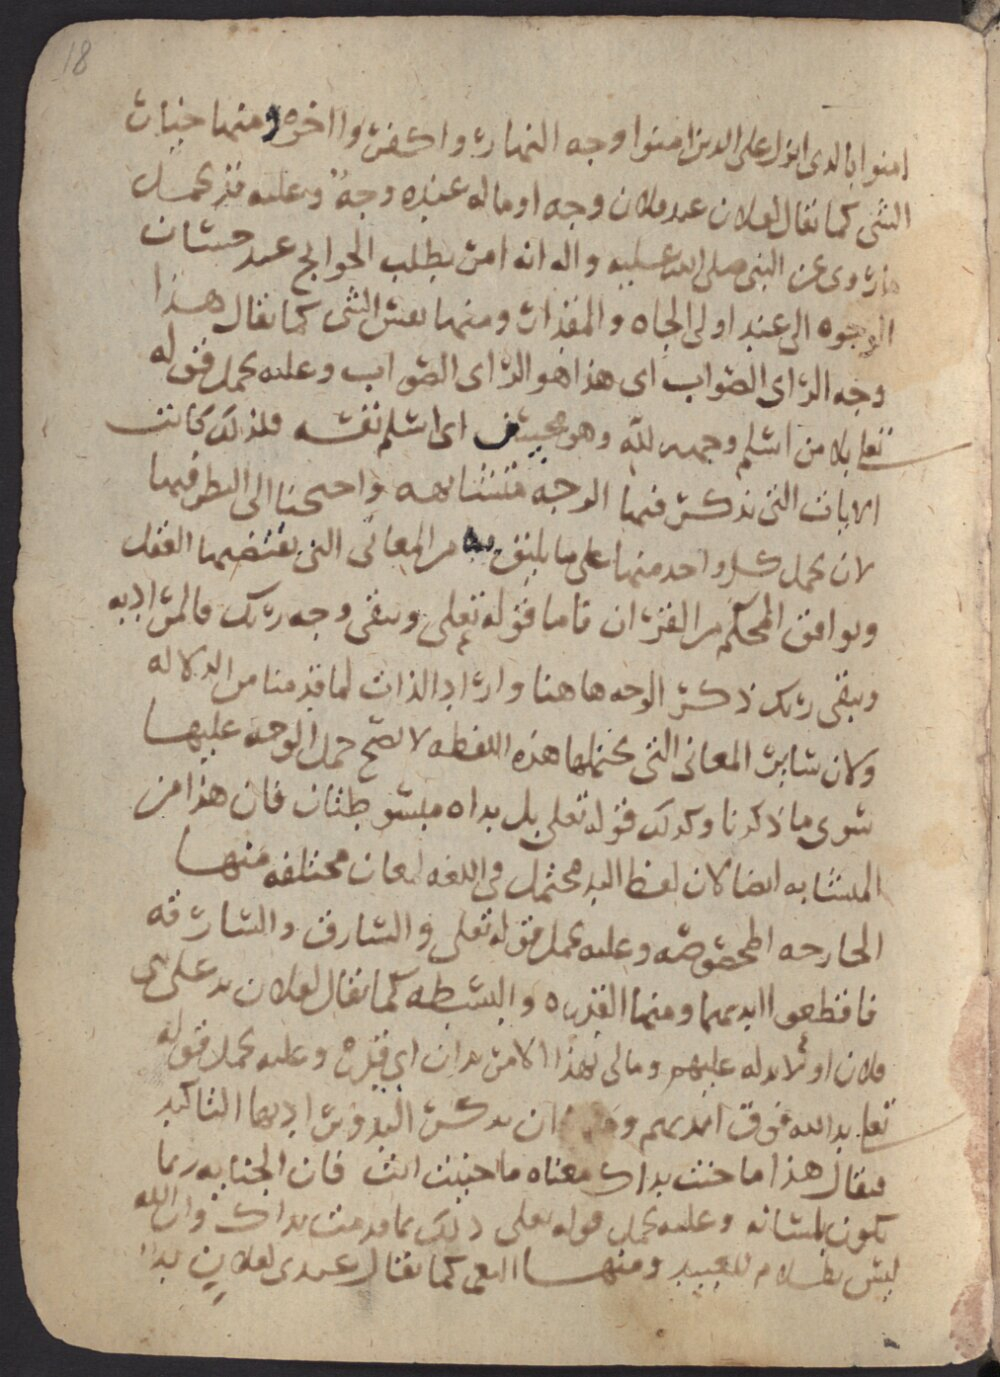 18
امنوا بالدى انزل على الدين امنوا وجه النهار واكفروا اخره ومنها حنات
الشى كما يقال لفلان عند فلان وجه او ماله عنده وجه وعليه قد يحمل
ما روى عن النبى صلى الله عليه واله انه امر بطلب الحوايج عند حسان
الوجوه اى عند اولى الجاه والمقدار ومنها نفس الشى كما يقال هذا
وجه الراى الصواب اى هذا هو الراى الصواب وعليه يحمل قوله
تعلى بلا من اسلم وجهه لله وهو محسن اى اسلم نفسه فلذلك كانت
الايات التى تذكر فيها الوجه متشابهه واحتجنا الى النظر فيها
لان يحمل كل واحد منها على ما يليق به من المعانى التى يقتضيها العقل
ويوافق المحكم من القران فاما قوله تعلى ويبقى وجه ربك فالمراد به
ويبقى ربك ذكر الوجه هاهنا واراد الذات لما قدمنا من الدلاله
ولان ساير المعانى التى يحتملها هذه اللفظه لا يصح حمل الوجه عليها
سوى ما ذكرنا وكذلك قوله تعلى بل يداه مبسوطتان فان هذا من
المتشابه ايضا لان لفظ اليد محتمل فى اللغه لمعان مختلفه منها
الجارحه المخصوصه وعليه يحمل قوله تعلى والسارق والسارقه
فاقطعوا ايديهما ومنها القدره والبسطه كما يقال لفلان يد على
فلان او لا يد له عليهم ومالى بهذا الامر يدان اى قدره وعليه يحمل قوله
تعلى يد الله فوق ايديهم ان يذكر اليد ويراد بها التاكيد
فيقال هذا ما جنت يداك معناه ما جنيت انت فان الجنايه ربما
يكون بلسانه وعليه يحمل قوله تعلى ذلك بما قدمت يداك وان الله
ليس بظلام للعبيد ومنها النعمى كما يقال عندى لفلان يد